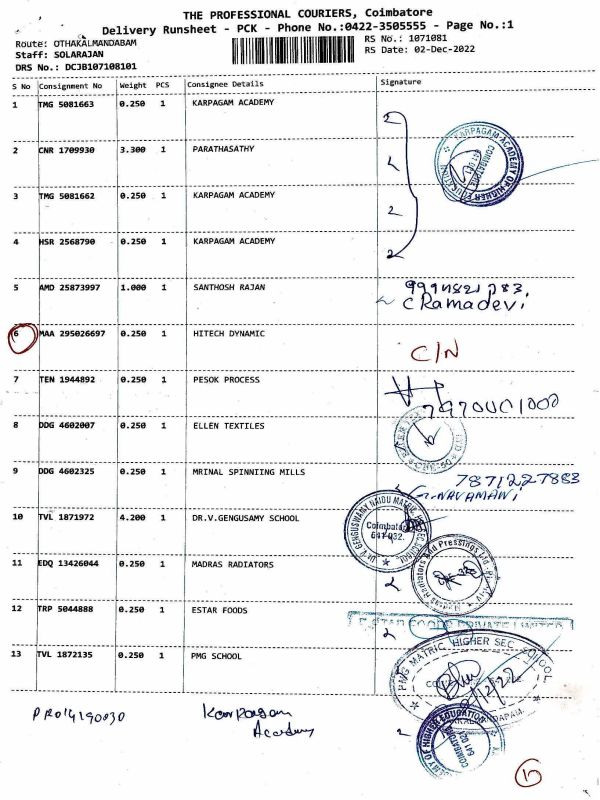 THE PROFESSIONAL COURIERS, Coimbatore
Delivery Runsheet - PCK - Phone No.:0422-3505555 - Page No.:1
Route: OTHAKALMANDABAM
RS No.: 1071081
Staff: SOLARAJAN
RS Date: 02-Dec-2022
DRS No.: DCJB107108101
S No Consignment No Weight PCS Consignee Details Signature
1 TMG 5081663 0.250 1 KARPAGAM ACADEMY
2 CNR 1709930 3.300 1 PARATHASATHY
KARPAGAM ACADEMY OF HIGHER EDUCATION
COIMBATORE
641 021
3 TMG 5081662 0.250 1 KARPAGAM ACADEMY
4 HSR 2568790 0.250 1 KARPAGAM ACADEMY
5 AMD 25873997 1.000 1 SANTHOSH RAJAN
C Ramadevi
6 MAA 295026697 0.250 1 HITECH DYNAMIC C/N
7 TEN 1944892 0.250 1 PESOK PROCESS
8 DDG 4602007 0.250 1 ELLEN TEXTILES
9 DDG 4602325 0.250 1 MRINAL SPINNIING MILLS 7871227883
NAVAMANI
10 TVL 1871972 4.200 1 DR.V.GENGUSAMY SCHOOL
Coimbatore
641 032.
11 EDQ 13426044 0.250 1 MADRAS RADIATORS
Madras Radiators And Pressings Ltd
12 TRP 5044888 0.250 1 ESTAR FOODS
ESTAR FOODS PRIVATE LIMITED
13 TVL 1872135 0.250 1 PMG SCHOOL
PMG MATRIC HIGHER SEC SCHOOL
2/12/22
PRO14190030 Karpagam
Academy
OF HIGHER EDUCATION
COIMBATORE
641 021